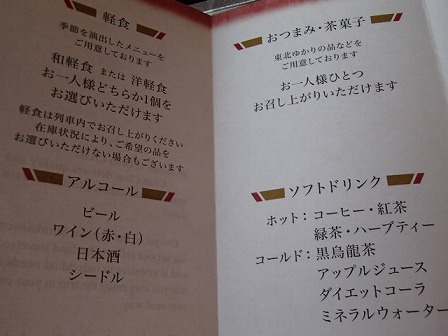 軽食
季節を演出したメニューを
ご用意しております
和軽食 または 洋軽食
お一人様どちらか1個を
お選びいただけます
軽食は列車内でお召し上がりください
在庫状況により、ご希望の品を
お選びいただけない場合もございます
アルコール
ビール
ワイン(赤・白)
日本酒
シードル
おつまみ・茶菓子
東北ゆかりの品などを
ご用意しております
お一人様ひとつ
お召し上がりいただけます
ソフトドリンク
ホット:コーヒー・紅茶
緑茶・ハーブティー
コールド:黒烏龍茶
アップルジュース
ダイエットコーラ
ミネラルウォーター